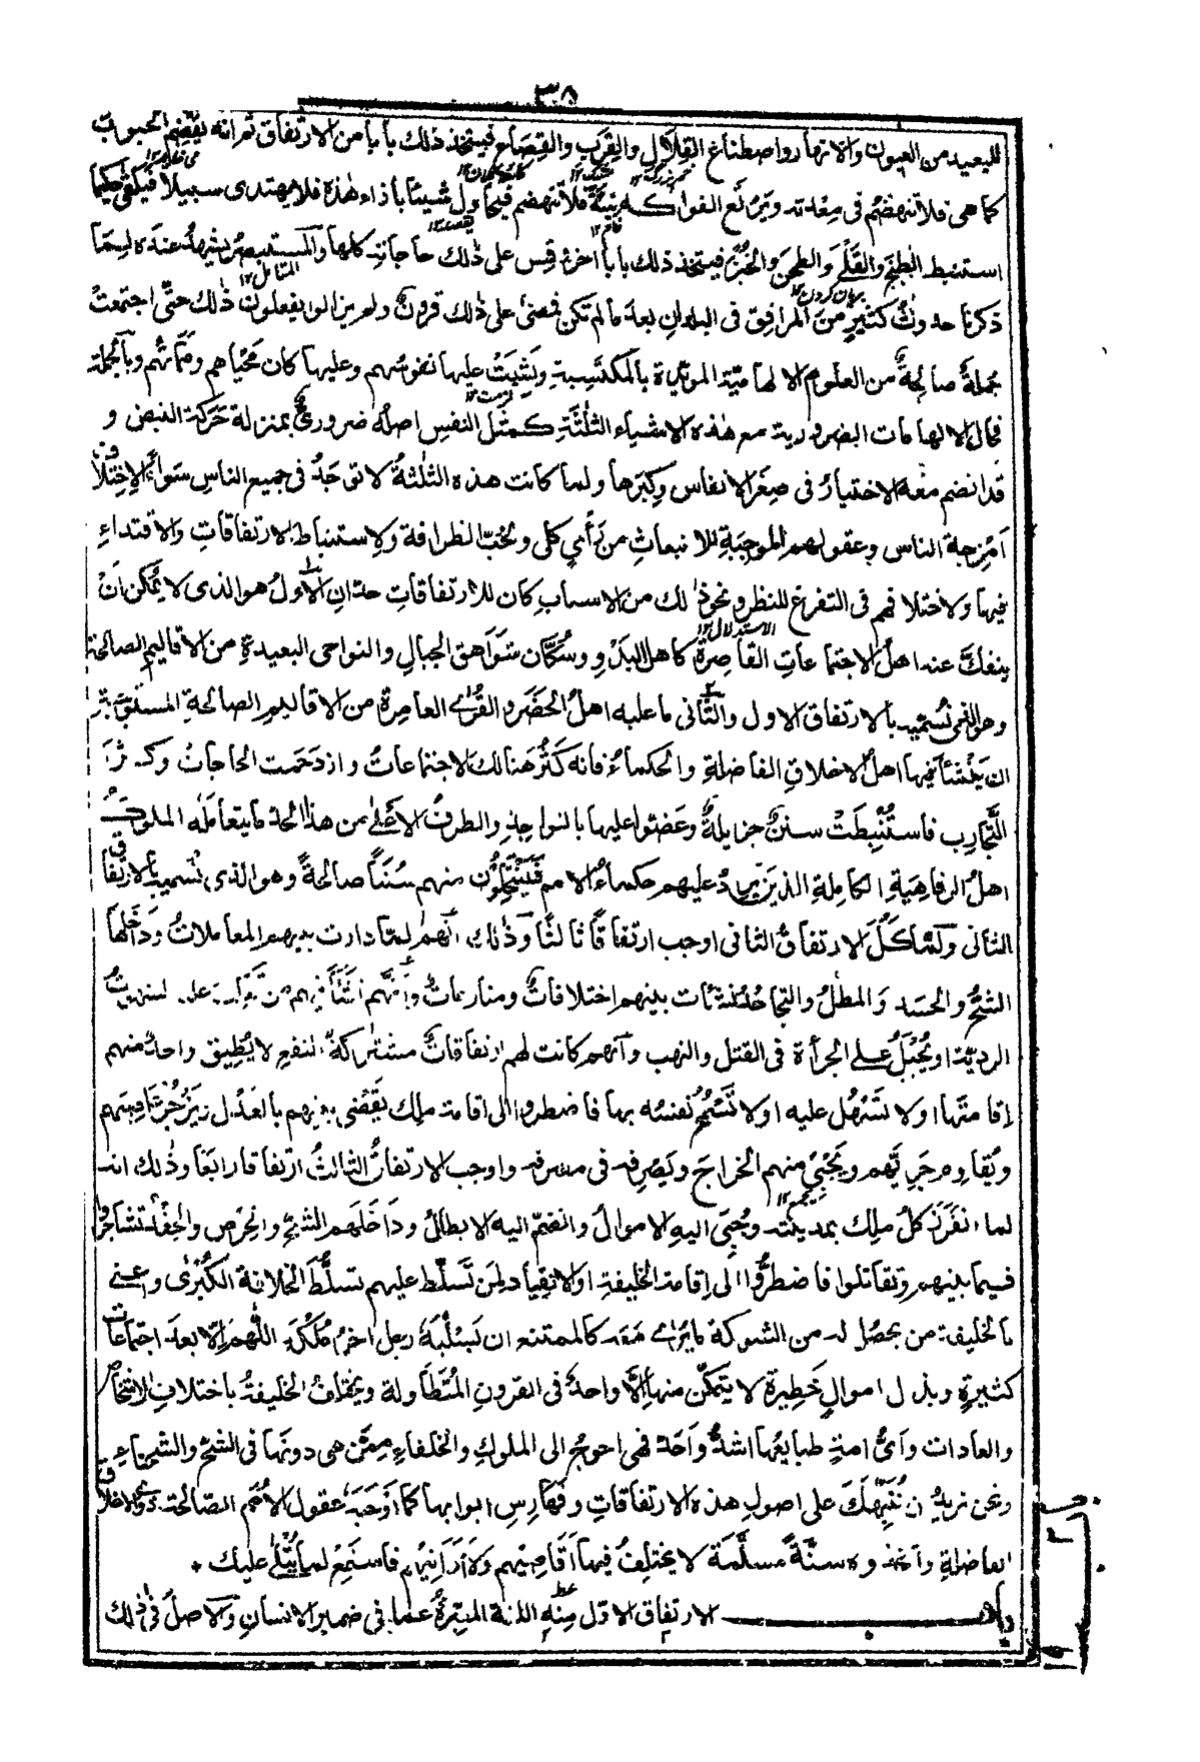 ٣٨
للبعيد من العيون والانهار واصطناع القلال والقرب والقصاع فيتخذ ذلك بابا من الارتفاق ثم انه يقضم الحبوب
كما هى فلا تنهضم فى معدته ويرتع الفواكه نيئة فلا تنهضم فيحاول شيئا بأزاء هذه فلا يهتدى سبيلا فيلقى حكيما
استنبط الطبخ والقلى والطحن والخبز فيتخذ ذلك بابا أخر وقس على ذلك حاجاته كلها والمستبصر يشهد عنده لما
ذكرنا حدوث كثير من المرافق فى البلدان بعد ما لم تكن فمضى على ذلك قرون ولم يزالوا يفعلون ذلك حتى اجتمعت
جملة صالحة من العلوم الالهامية المؤيدة بالمكتسبة ونشبت عليها نفوسهم وعليها كان محياهم ومماتهم وبالجملة
فحال الالهامات الضرورية مع هذه الاشياء الثلثة كمثل النفس اصله ضرورى بمنزلة حركة النبض و
قد انضم معه الاختيار فى صغر الانفاس وكبرها ولما كانت هذه الثلثة لا توجد فى جميع الناس سواء لاختلاف
امزجة الناس وعقولهم الموجبة للانبعاث من رأى كلى ولحب الظرافة ولاستنباط الارتفاقات والاقتداء
فيها ولاختلافهم فى التفرغ للنظر ونحو ذلك من الاسباب كان للارتفاقات حدان الاول هو الذى لا يمكن ان
ينفك عنه اهل الاجتماعات القاصرة كاهل البدو وسكان شواهق الجبال والنواحى البعيدة من الاقاليم الصالحة
وهو الذى نسميه بالارتفاق الاول والثانى ما عليه اهل الحضر والقرى العامرة من الاقاليم الصالحة المستوجبة
ان ينشأ فيها اهل الاخلاق الفاضلة والحكماء فانه كثر هنالك الاجتماعات وازدحمت الحاجات وكثرت
التجارب فاستنبطت سنن جزيلة وعضوا عليها بالنواجذ والطرف الاعلى من هذا الحد ما يتعامله الملوك
اهل الرفاهية الكاملة الذين يرد عليهم حكماء الامم فينتحلون منهم سننا صالحة وهو الذى نسميه بالارتفاق
الثانى ولما كمل الارتفاق الثانى اوجب ارتفاقا ثالثا وذلك انهم لما دارت بينهم المعاملات وداخلها
الشح والحسد والمطل والتجاحد نشأت بينهم اختلافات ومنازعات وانهم نشأ فيهم من تغلب عليه الشهوات
الردية او يجبل على الجرأة فى القتل والنهب وانهم كانت لهم ارتفاقات مشتركة النفع لا يطيق واحد منهم
اقامتها او لا تسهل عليه او لا تسمح نفسه بها فاضطروا الى اقامة ملك يقضى بينهم بالعدل ويزجر عاصيهم
ويقاوم جريهم ويجبى منهم الخراج ويصرفه فى مصرفه واوجب الارتفاق الثالث ارتفاقا رابعا وذلك انه
لما انفرز كل ملك بمدينته وجبى اليه الاموال وانضم اليه الابطال وداخلهم الشح والحرص والحقد تشاجروا
فيما بينهم وتقاتلوا فاضطروا الى اقامة الخليفة او الانقياد لمن تسلط عليهم تسلط الخلافة الكبرى واعنى
بالخليفة من يحصل له من الشوكة ما يرى معه كالممتنع ان يسلبه رجل اخر ملكه اللهم الا بعد اجتماعات
كثيرة وبذل اموال خطيرة لا يتمكن منها الا واحد فى القرون المتطاولة ويختلف الخليفة باختلاف الاشخاص
والعادات واى امة طبايعها اشد واحد فهى احوج الى الملوك والخلفاء ممن هى دونها فى الشح والشحناء
ونحن نريد ان ننبهك على اصول هذه الارتفاقات وفهارس ابوابها كما اوجبه عقول الامم الصالحة ذوى الاخلاق
الفاضلة واتخذوه سنة مسلمة لا يختلف فيها اقاصيهم ولا ادانيهم فاستمع لما يتلى عليك
باب الارتفاق الاول منه اللغة المعبرة عما فى ضمير الانسان والاصل فى ذلك